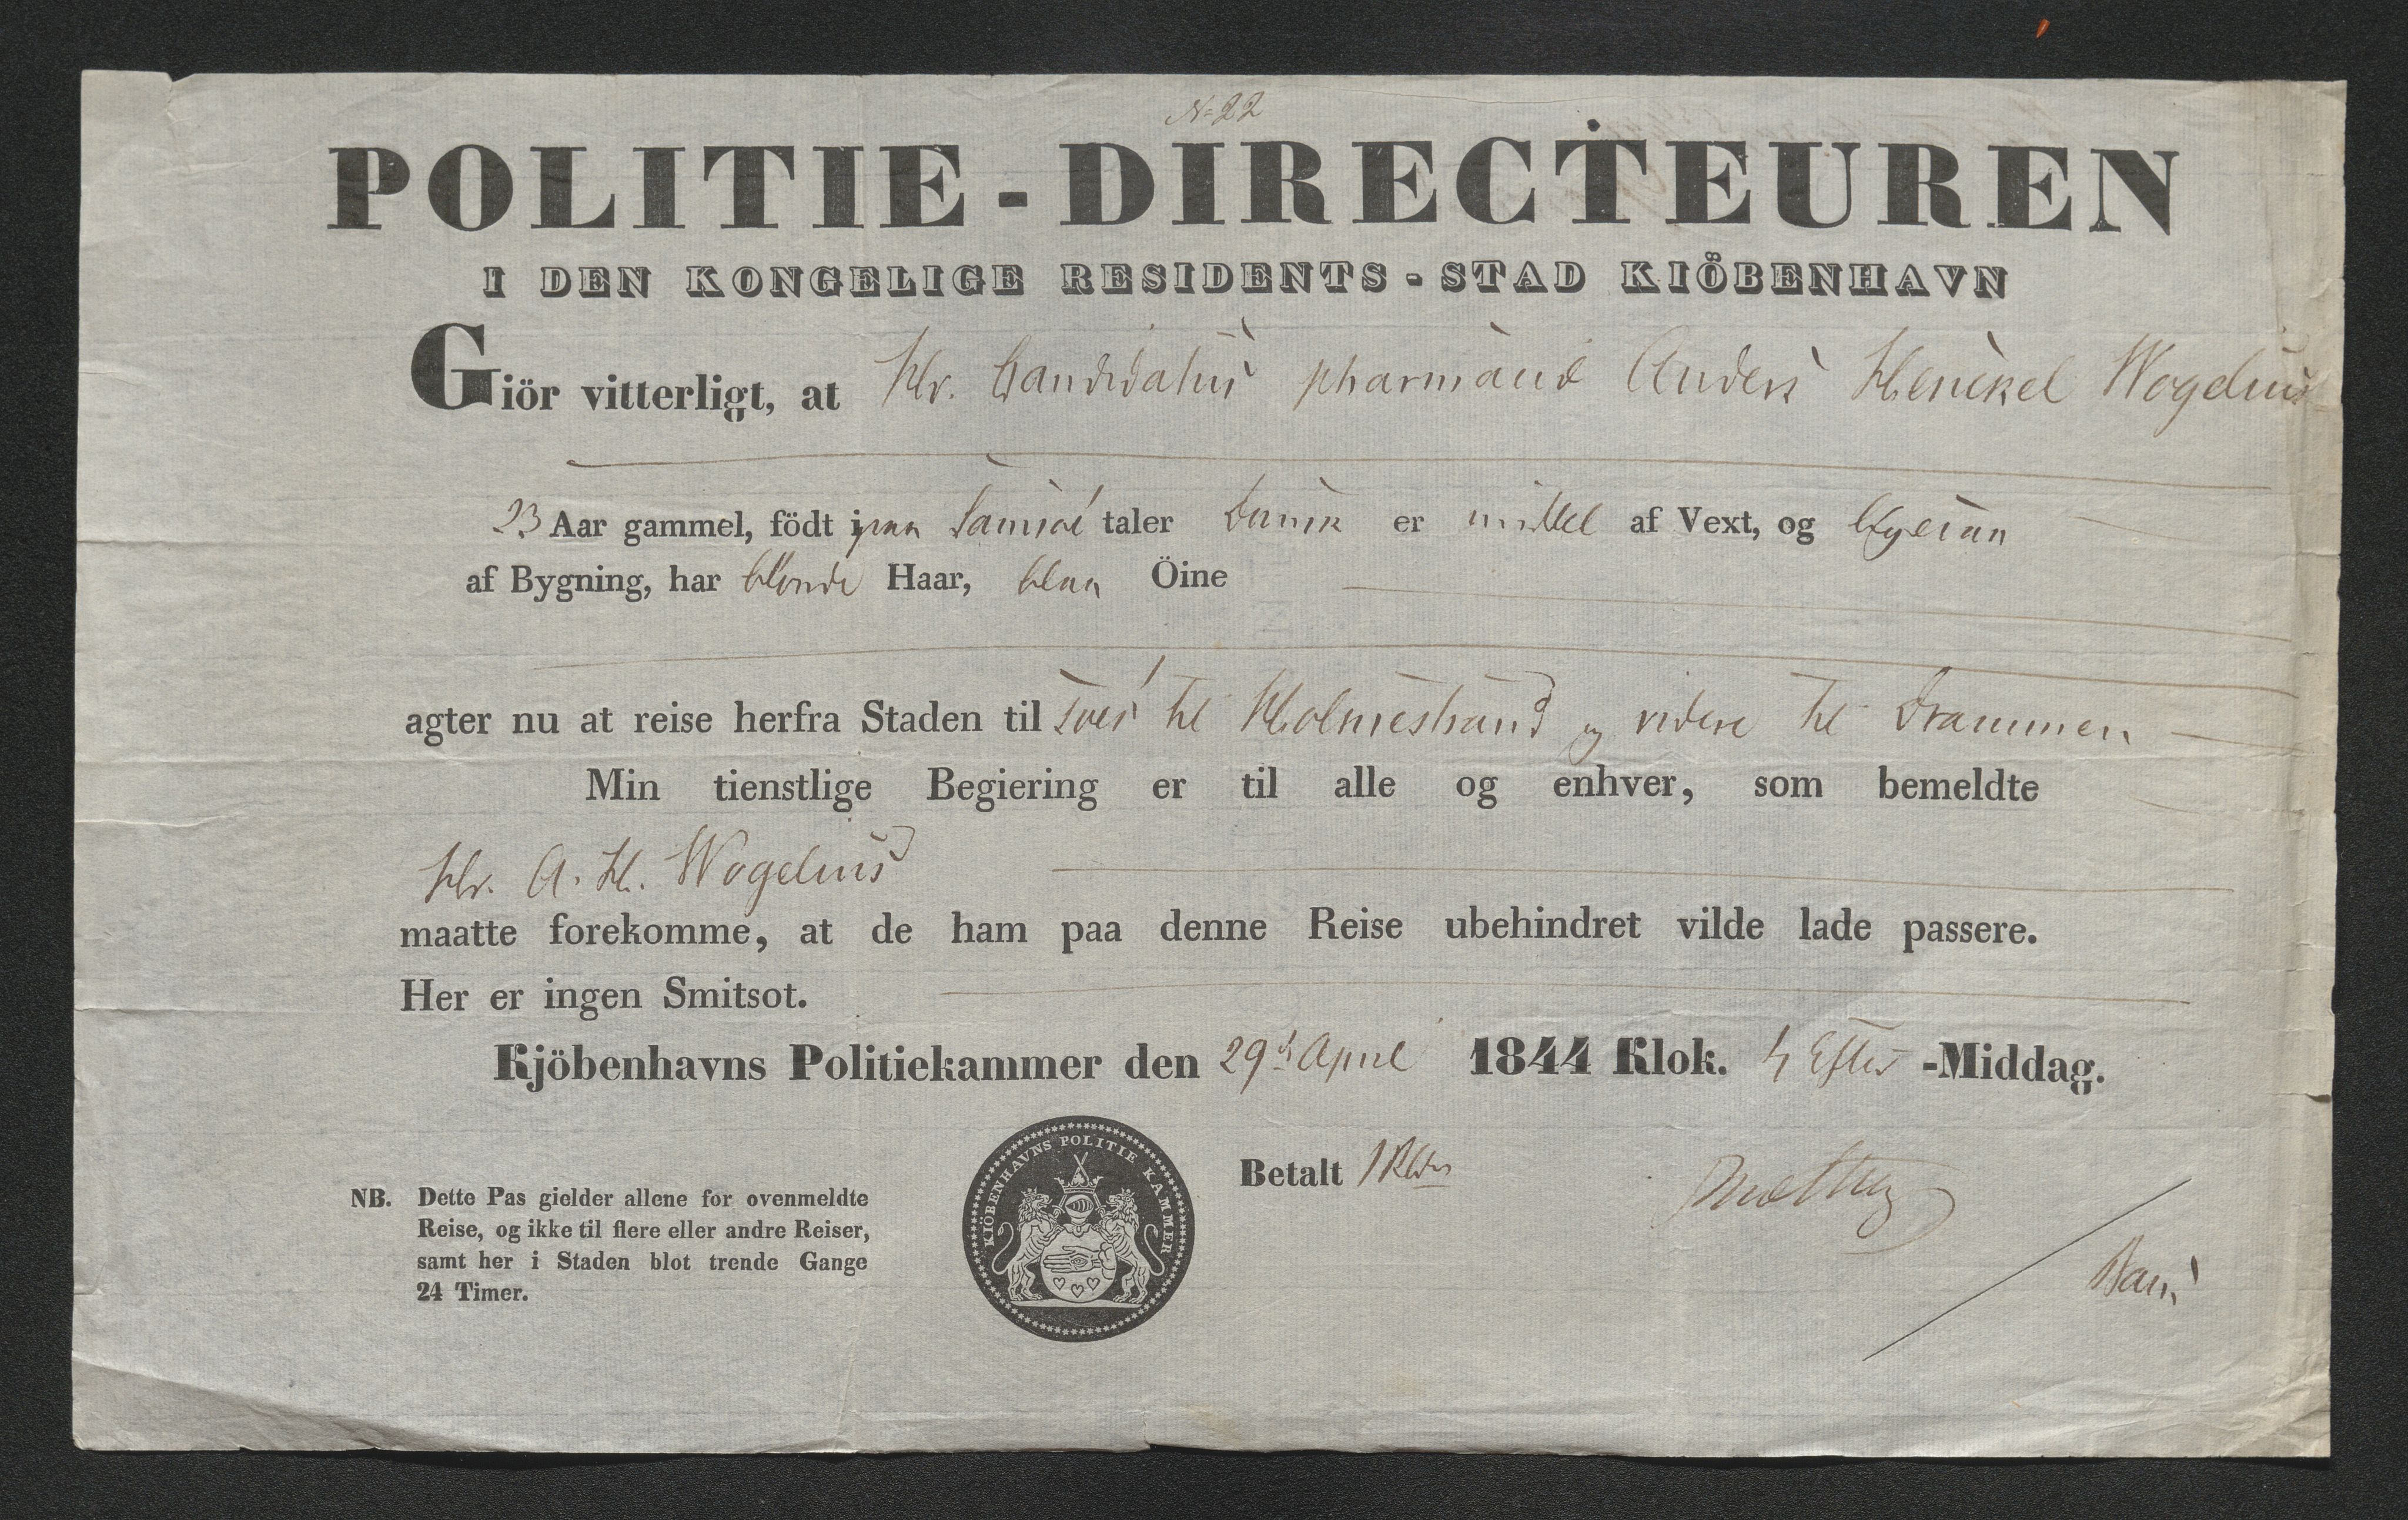 No 22
POLITIE-DIRECTEUREN
I DEN KONGELIGE RESIDENTS-STAD KIÖBENHAVN
Giör vitterligt, at Hr. Candidatus pharmaciæ Anders Henckel Wogelius
23 Aar gammel, födt i paa Samsöe taler Dansk er middel af Vext, og
af Bygning, har blonde Haar, blaa Öine
agter nu at reise herfra Staden til söes til Holmestrand og videre til Drammen
Min tienstlige Begiering er til alle og enhver, som bemeldte
Hr. A. H. Wogelius
maatte forekomme, at de ham paa denne Reise ubehindret vilde lade passere.
Her er ingen Smitsot.
Kjöbenhavns Politiekammer den 29d April 1844 Klok. Efter-Middag.
KIÖBENHAVNS POLITIE KAMMER
Betalt 1 Rbdr
NB. Dette Pas gielder allene for ovenmeldte
Reise, og ikke til flere eller andre Reiser,
samt her i Staden blot trende Gange
24 Timer.